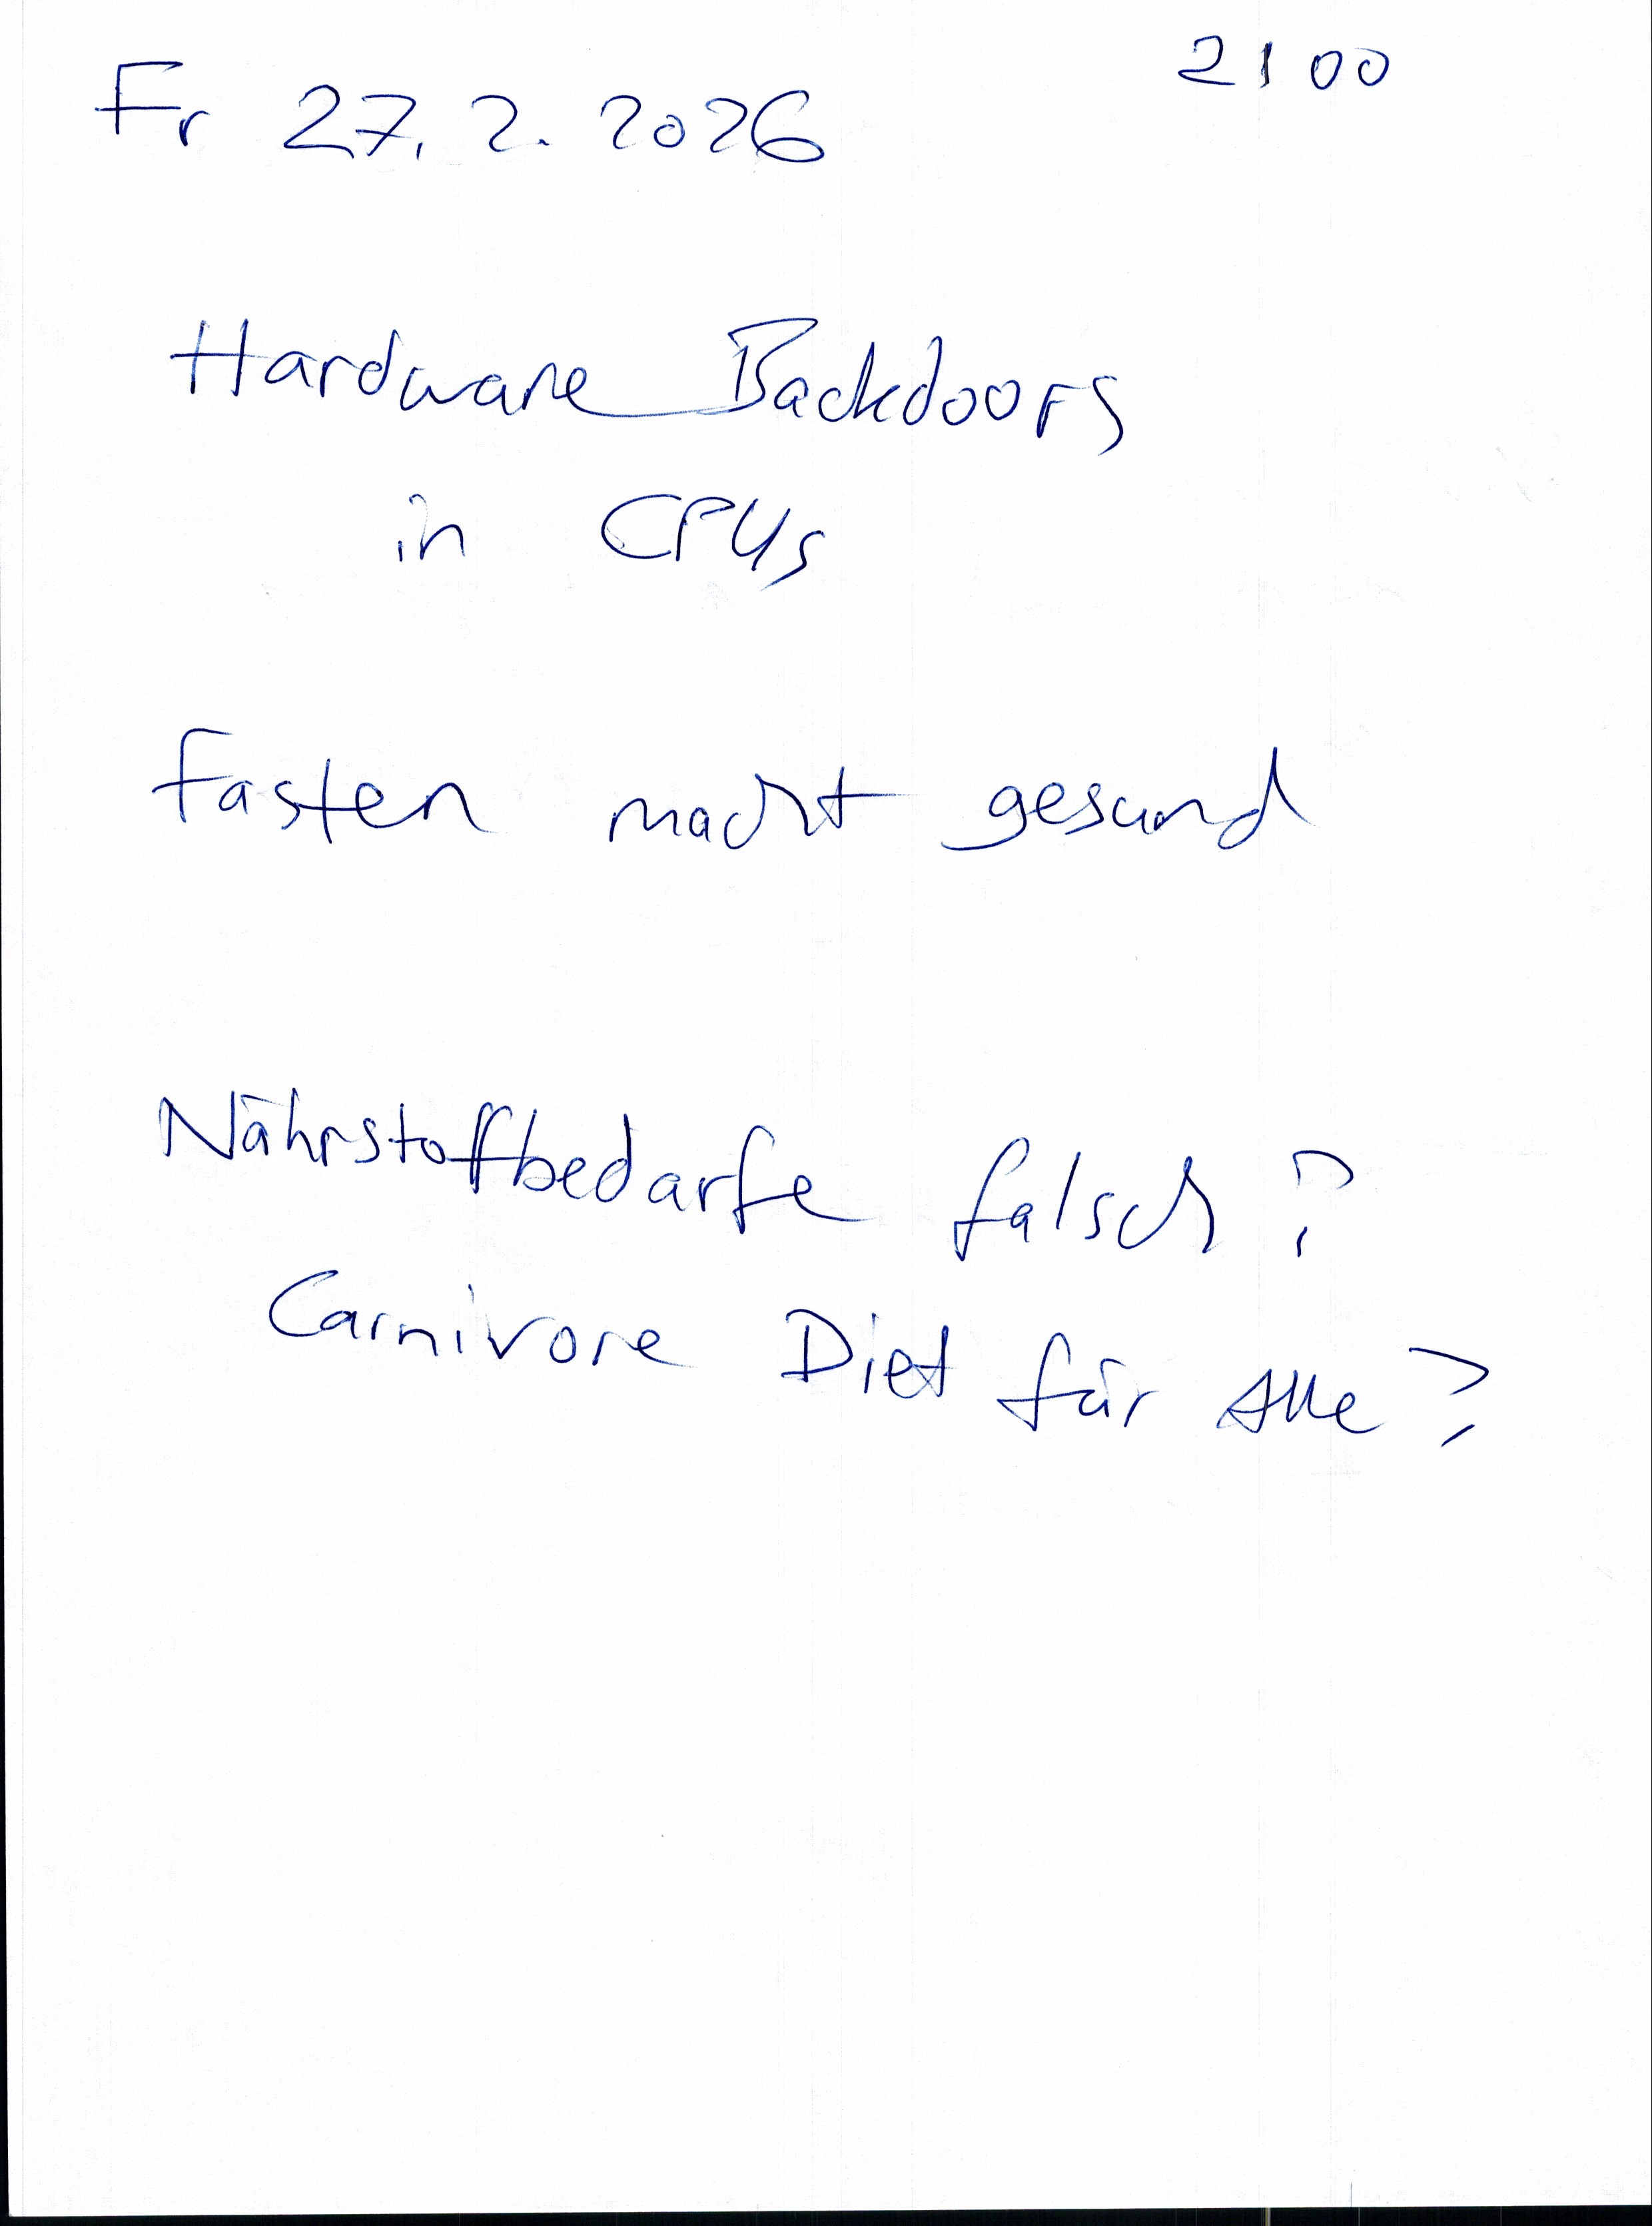 Fr 27.2.2026 2100
Hardware Backdoors
in CPUs
Fasten macht gesund
Nährstoffbedarfe falsch?
Carnivore Diet für Alle?